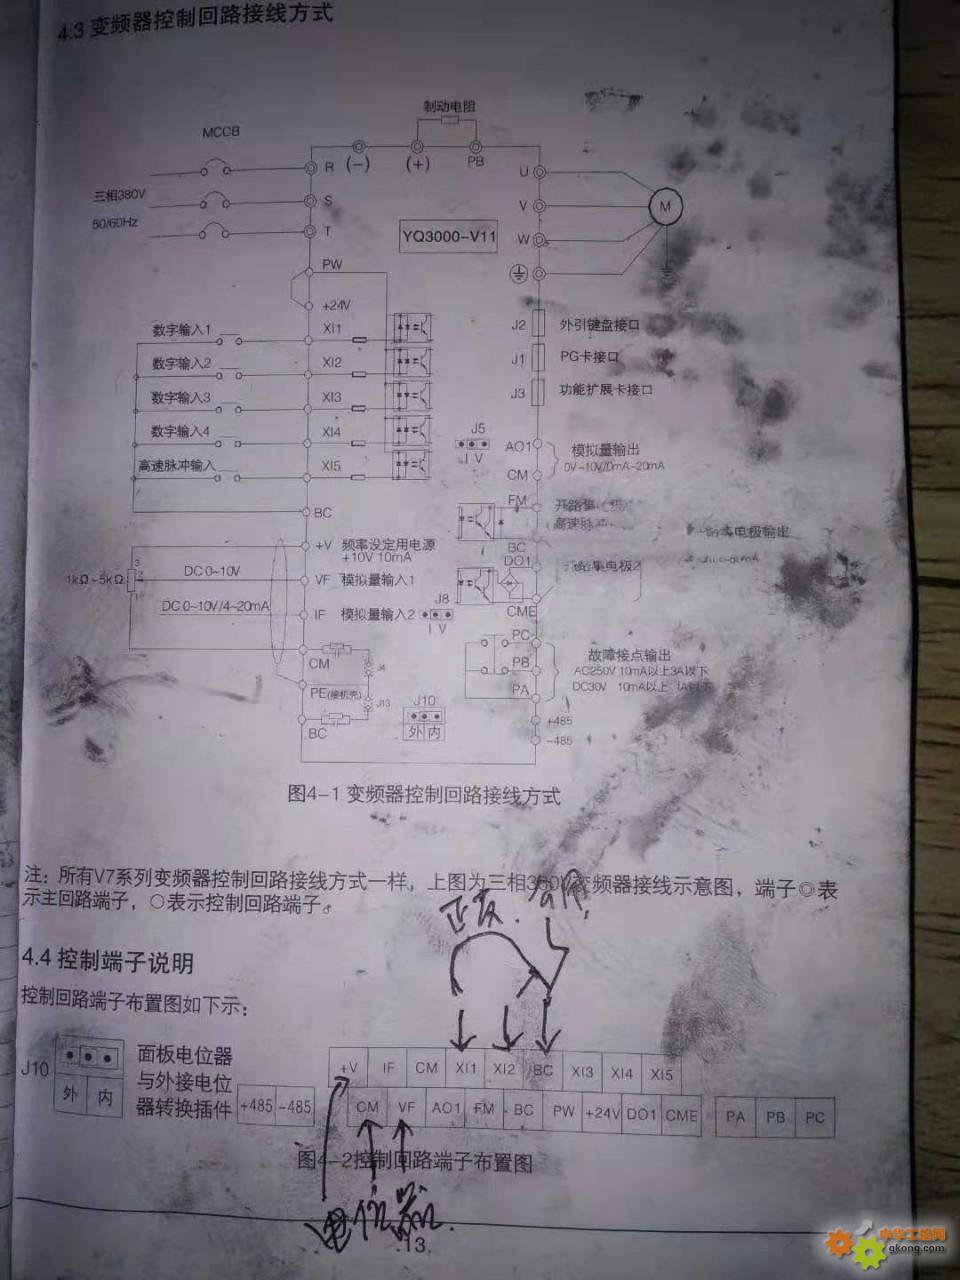 4.3 变频器控制回路接线方式
制动电阻
MCCB
R
(-)
(+)
PB
U
三相380V
S
V
M
50/60Hz
T
YQ3000-V11
W
PW
+24V
数字输入1
XI1
J2
外引键盘接口
数字输入2
XI2
J1
PG卡接口
数字输入3
XI3
J3
功能扩展卡接口
数字输入4
XI4
J5
I V
AO1
模拟量输出
0V~10V/0mA~20mA
高速脉冲输入
XI5
CM
FM
高速脉冲
BC
BC
电极输出
+V
频率设定用电源
+10V 10mA
DO1
集电极2
1kΩ~5kΩ
3
2
1
DC 0~10V
VF
模拟量输入1
DC 0~10V/4~20mA
IF
模拟量输入2
J8
I V
CME
PC
故障接点输出
CM
J4
PB
AC250V 10mA以上3A以下
PE(接机壳)
J13
PA
DC30V 10mA以上 1A以下
J10
外 内
+485
BC
-485
图4-1 变频器控制回路接线方式
注：所有V7系列变频器控制回路接线方式一样，上图为三相380V变频器接线示意图，端子◎表
示主回路端子，○表示控制回路端子。
正反.
4.4 控制端子说明
控制回路端子布置图如下示：
J10
外 内
面板电位器
与外接电位
器转换插件
+V IF CM XI1 XI2 BC XI3 XI4 XI5
+485 -485 CM VF AO1 FM BC PW +24V DO1 CME PA PB PC
图4-2控制回路端子布置图
电位器.
13
中华工控网
gkong.com